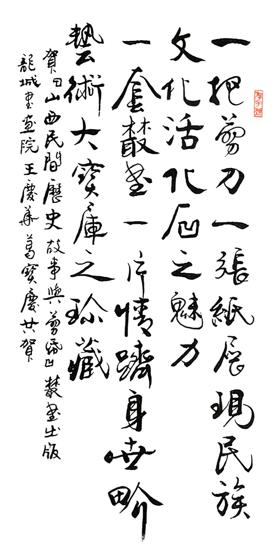 一把剪刀一張紙展現民族
文化活化石之魅力
一套叢書一片情躋身世界
藝術大寶庫之珍藏
賀曰山西民間歷史故事與剪紙叢書出版
龍城書畫院王慶華葛寶慶共賀